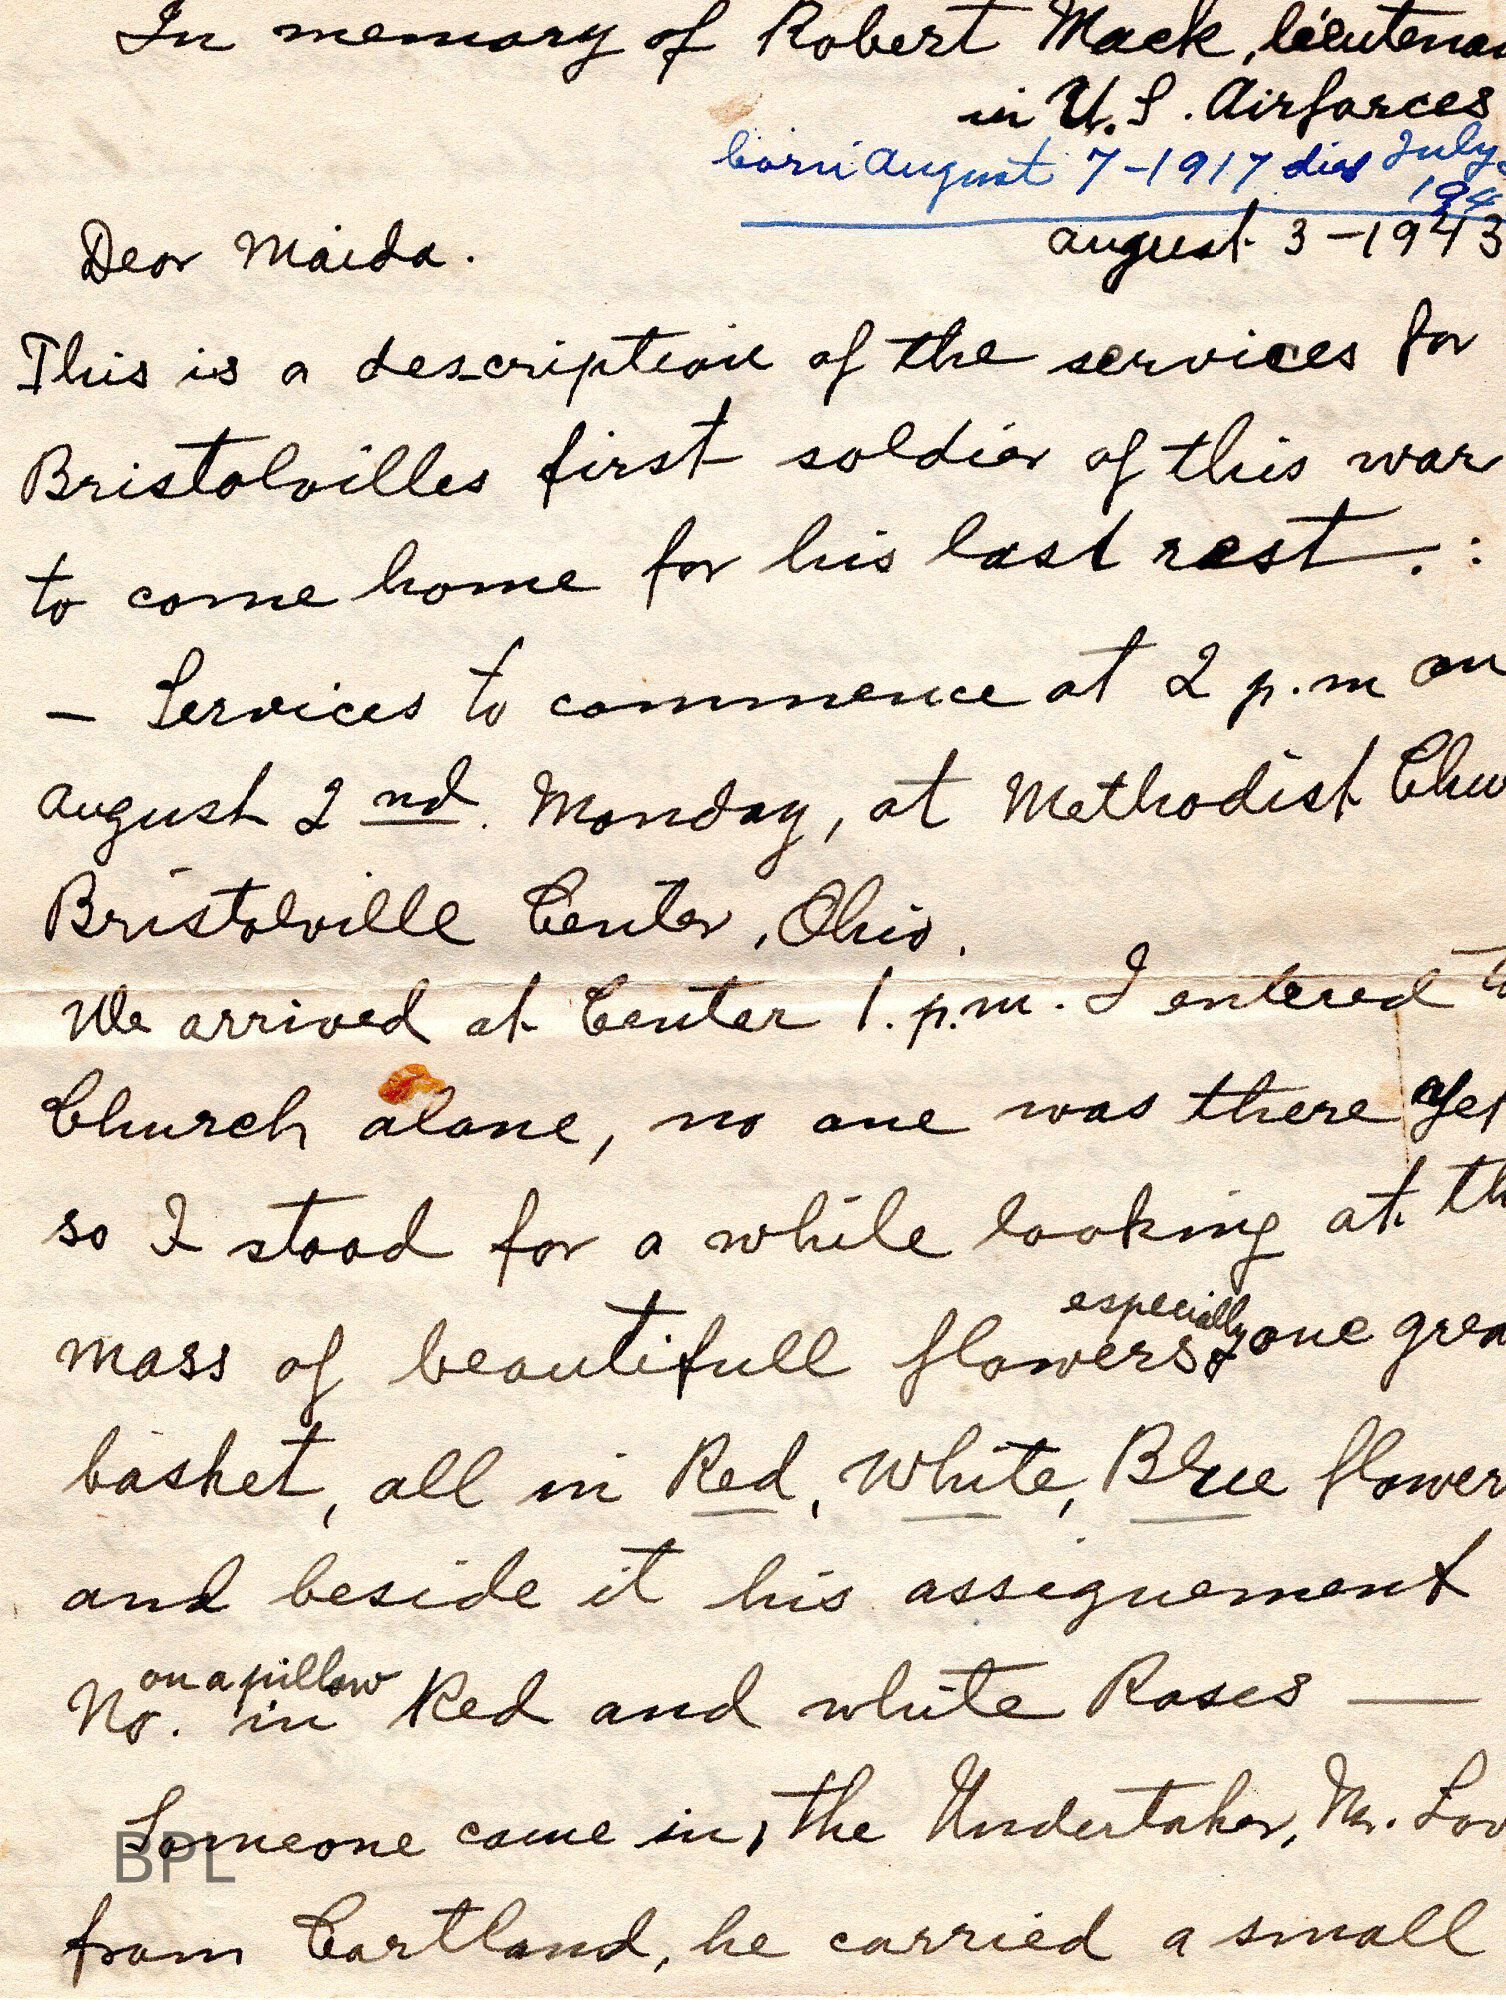 In memory of Robert Mack, lieutenan
in U.S. Airforces
born August 7-1917 dies July
194
Dear Maida.
august 3-1943
This is a description of the services for
Bristolvilles first soldier of this war
to come home for his last rest. :
- Services to commence at 2 p.m on
august 2nd. Monday, at Methodist Chu
Bristolville Center, Ohio.
We arrived at Center 1. p.m. I entered t
Church alone, no one was there yet
so I stood for a while looking at th
especially
mass of beautifull flowers, one grea
basket, all in Red, White, Blue flower
and beside it his assignement
on a pillow
No. in Red and white Roses —
Someone came in, the Undertaker, Mr. Lov
from Cortland, he carried a small
BPL